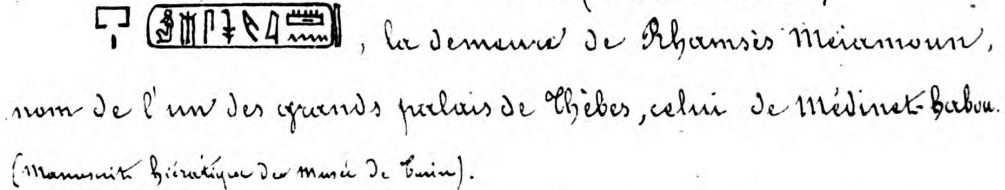 𓉐𓏤 , la demeure de Rhamsès Meiamoun,
nom de l'un des grands palais de Thèbes, celui de Médinet-habou.
(Manuscrit hiératique du musée de Turin).